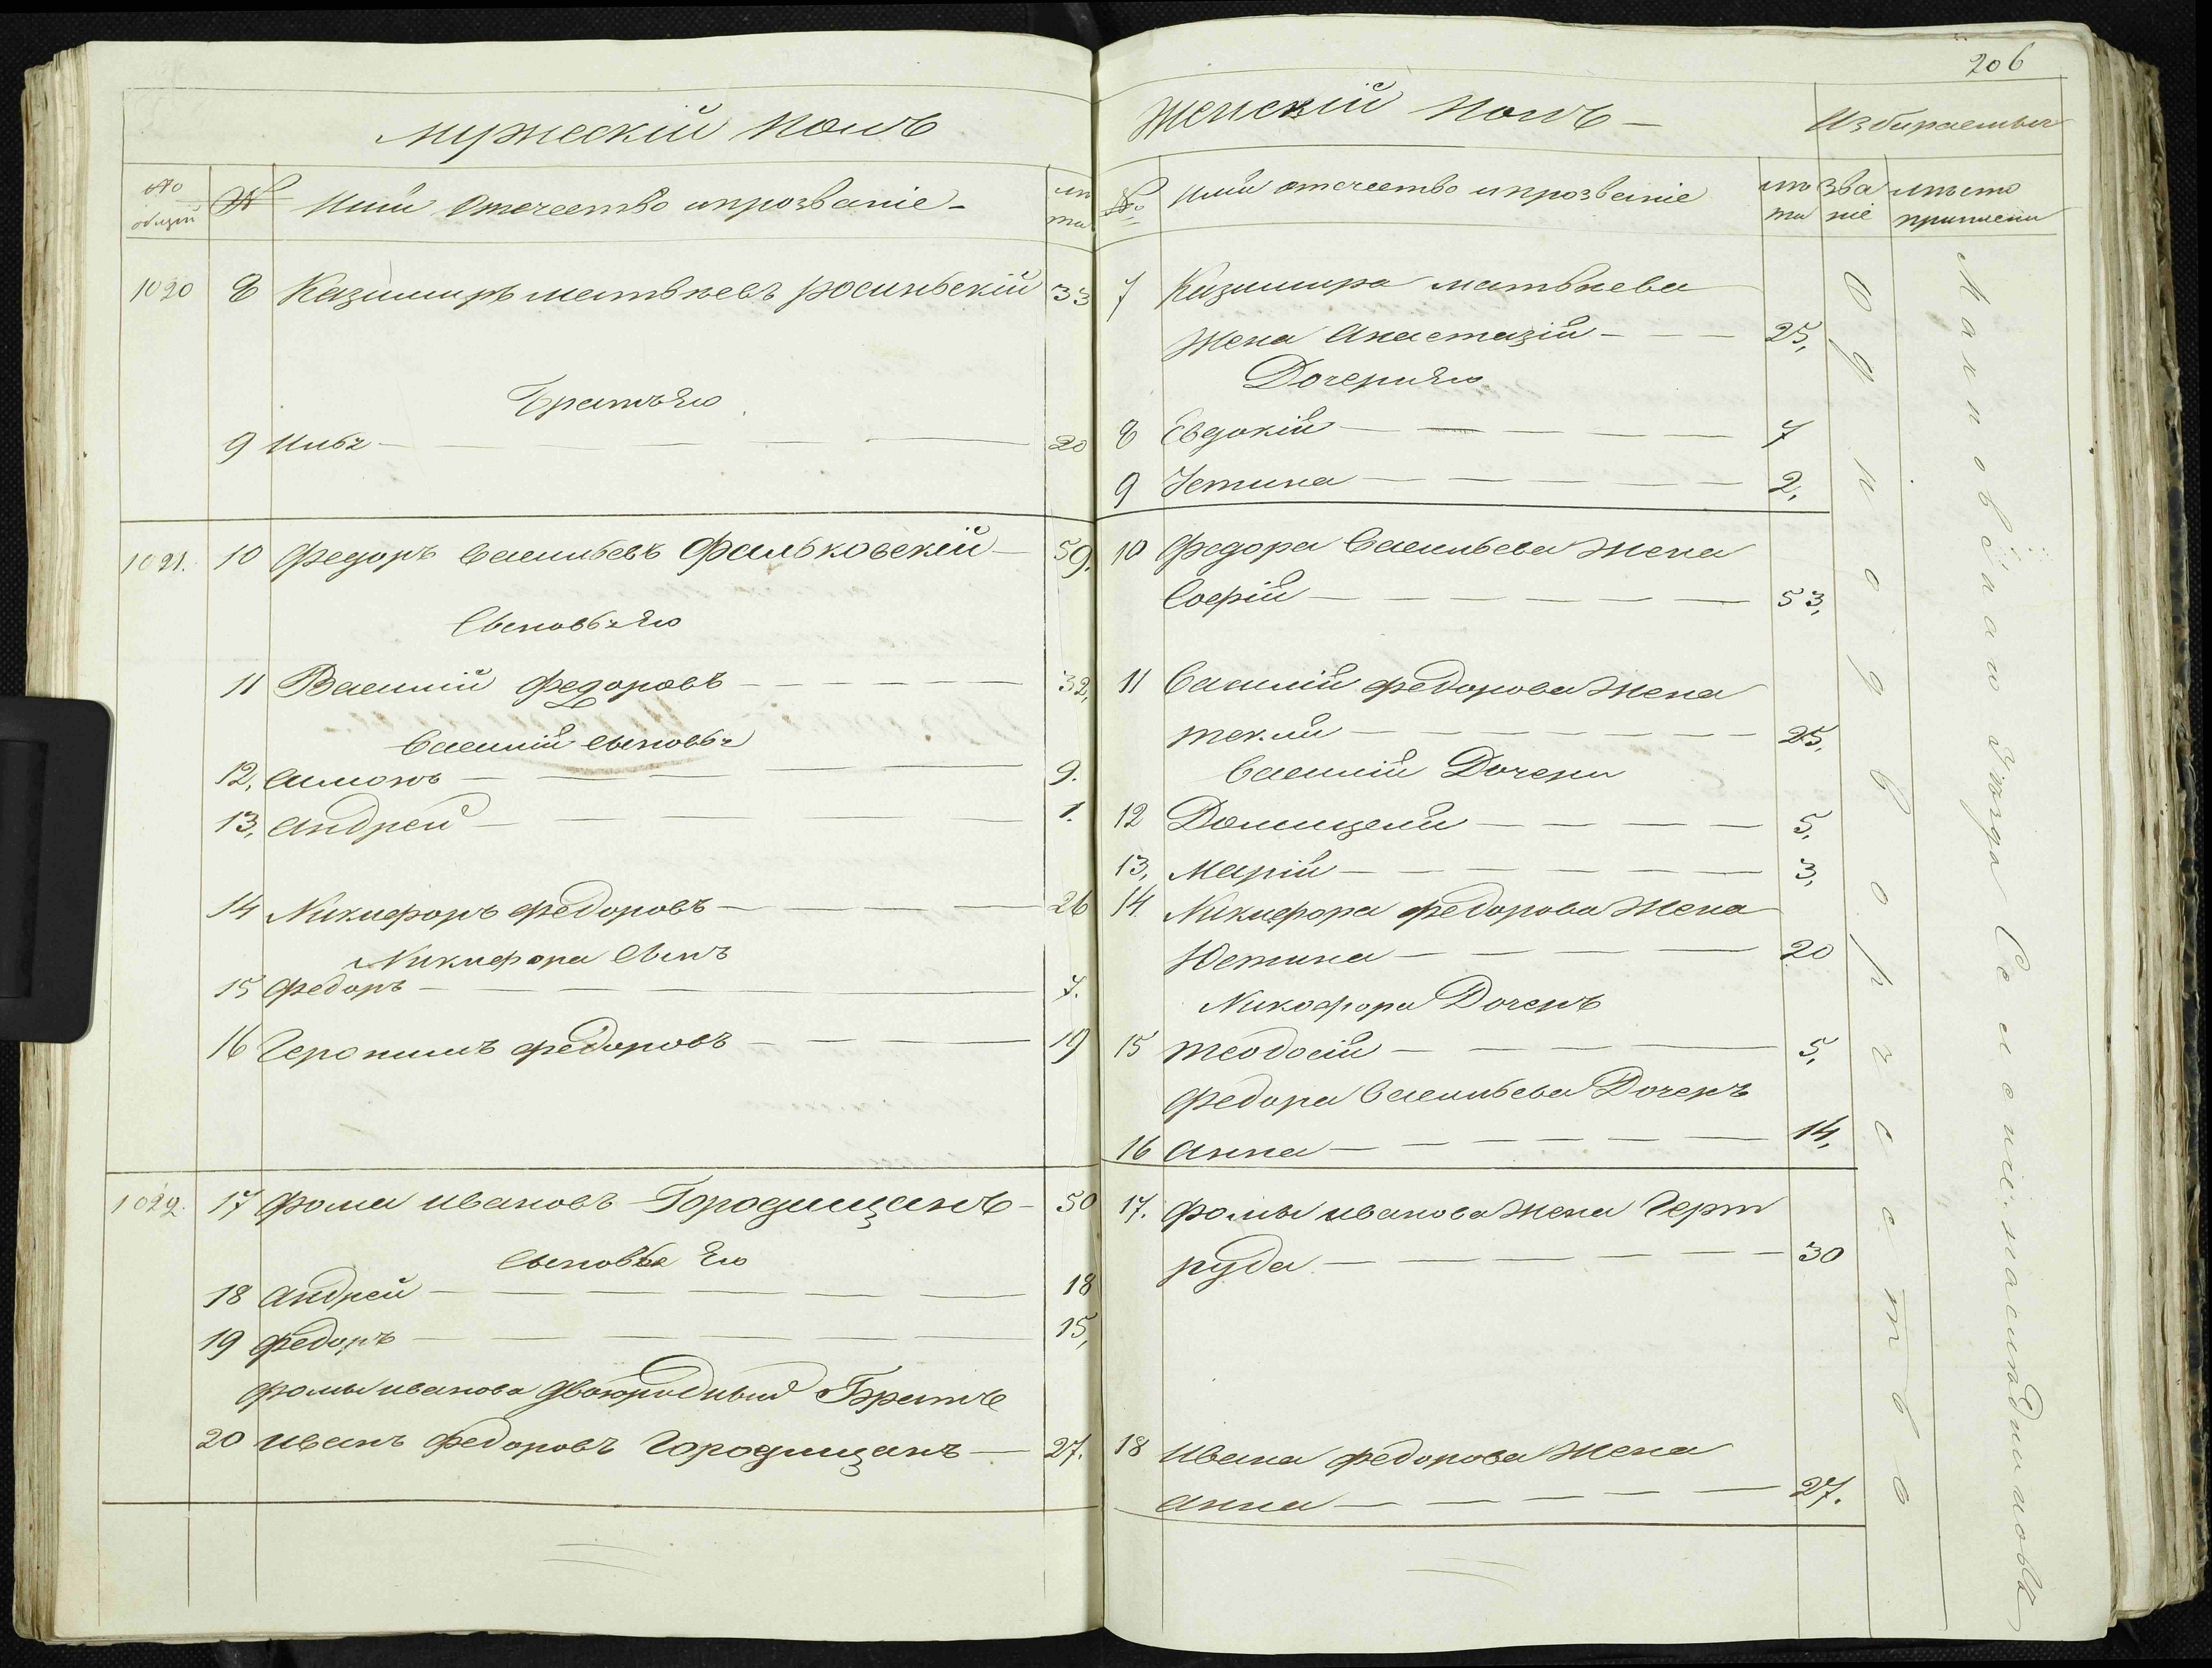 206
Мужескій Полъ
№ общій
№
Имя Отечество и прозваніе
лѣта
1020 8 Казимиръ Матвѣевъ Росинскій 33
Братъ Его
9 20
1021. 10 Федоръ Васильевъ Фальковскій 59,
Сыновья Его
11 Василій Федоровъ 32,
Василія Сыновья
12, Симонъ 9.
13, Андрей 1.
14 Никифоръ Федоровъ 26
Никифора Сынъ
15 Федоръ 7.
16 Геронимъ Федоровъ 19
1022. 17 Фома Ивановъ Городищанъ 50
Сыновья Его
18 Андрей 18
19 Федоръ 15,
Фомы Иванова Двоюродный Братъ
20 Иванъ Федоровъ Городищанъ 27.
Женскій Полъ
Избираемыя
№
Имя отечество и прозваніе
лѣта
званіе
мѣсто
7 Казимира Матвѣева
Жена Анастазія 25,
Дочери Его
8 Евдокія 7
9 Устина 2,
10 Федора Васильева Жена
Софія 53,
11 Василія Федорова Жена
Текля 25,
Василія Дочери
12 Домицеля 5,
13, Марія 3,
14 Никифора Федорова Жена
Юстина 20
Никофора Дочерь
15 Теодосія 5,
Федора Васильева Дочерь
16 Анна 14,
17. Фомы Иванова Жена Герт
руда 30
18 Ивана Федорова Жена
Анна 27.
Однодворчество